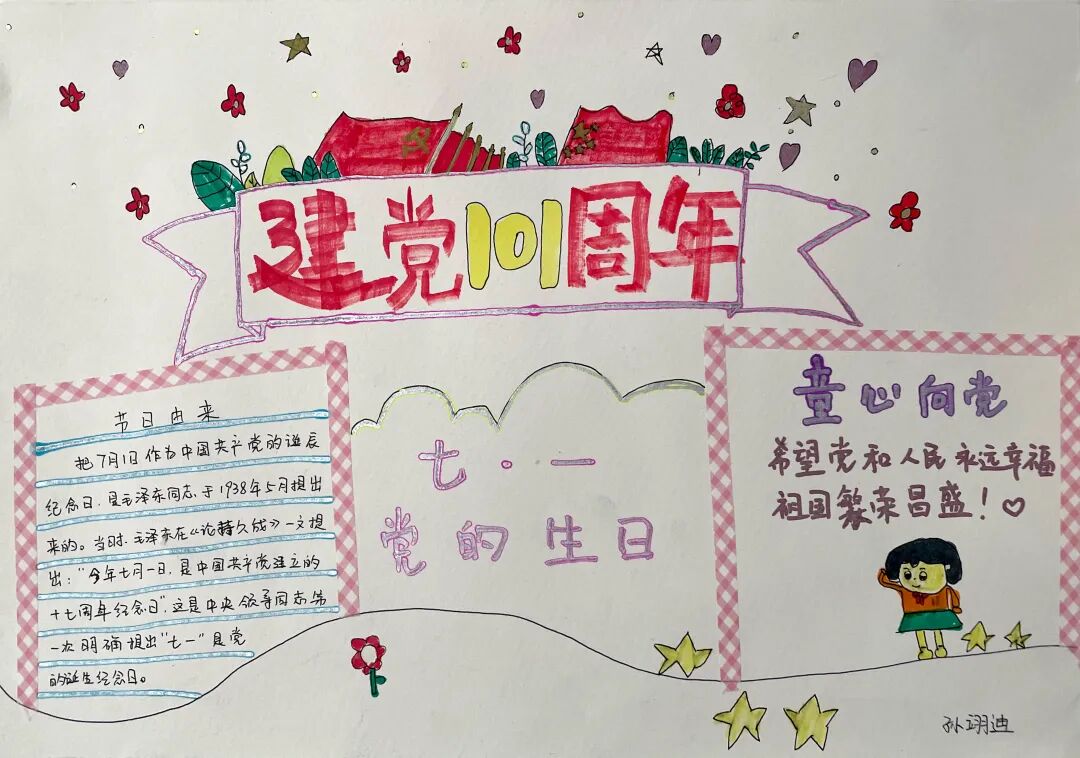 建党101周年
节日由来
把7月1日作为中国共产党的诞辰
纪念日，是毛泽东同志于1938年5月提出
来的。当时，毛泽东在《论持久战》一文提
出："今年七月一日，是中国共产党建立的
十七周年纪念日"，这是中央领导同志第
一次明确提出"七一"是党
的诞生纪念日。
七·一
党的生日
童心向党
希望党和人民永远幸福
祖国繁荣昌盛！
孙翊迪